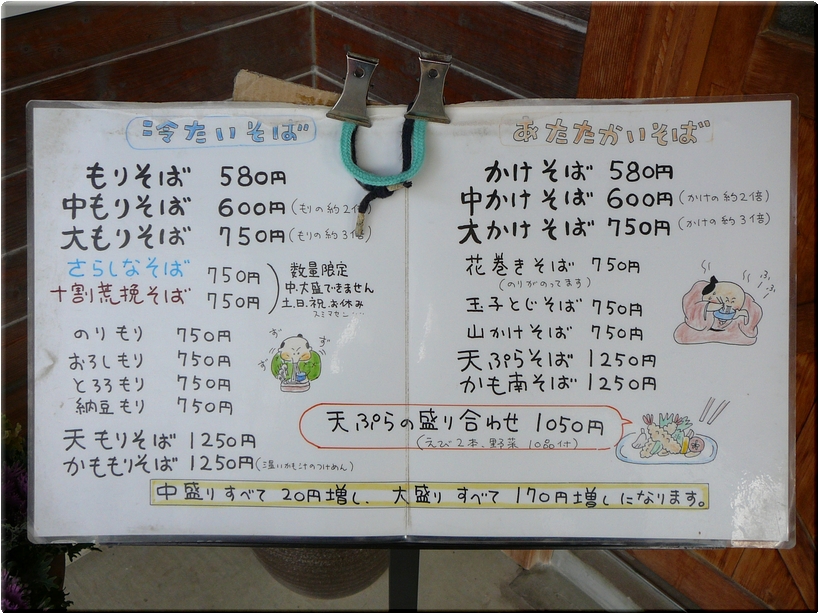 冷たいそば
もりそば 580円
中もりそば 600円(もりの約2倍)
大もりそば 750円(もりの約3倍)
さらしなそば 750円
十割荒挽そば 750円
数量限定
中・大盛できません
土、日、祝、お休み
スミマセン…
のりもり 750円
おろしもり 750円
とろろもり 750円
納豆もり 750円
ずず
ずず
天もりそば 1250円
かももりそば 1250円(温いかも汁のつけめん)
あたたかいそば
かけそば 580円
中かけそば 600円(かけの約2倍)
大かけそば 750円(かけの約3倍)
花巻きそば 750円
(のりがのってます)
玉子とじそば 750円
山かけそば 750円
天ぷらそば 1250円
かも南そば 1250円
ふふふ
天ぷらの盛り合わせ 1050円
(えび2本、野菜10品付)
中盛りすべて20円増し、大盛りすべて170円増しになります。